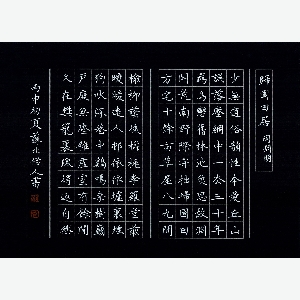 歸園田居 陶淵明
少無適俗韻性本愛丘山
誤落塵網中一去三十年
羈鳥戀舊林池魚思故淵
開荒南野際守拙歸園田
方宅十餘畝草屋八九間
榆柳蔭後檐桃李羅堂前
曖曖遠人村依依墟里煙
狗吠深巷中雞鳴桑樹顛
戶庭無塵雜虛室有餘閒
久在樊籠裏復得返自然
丙申初夏